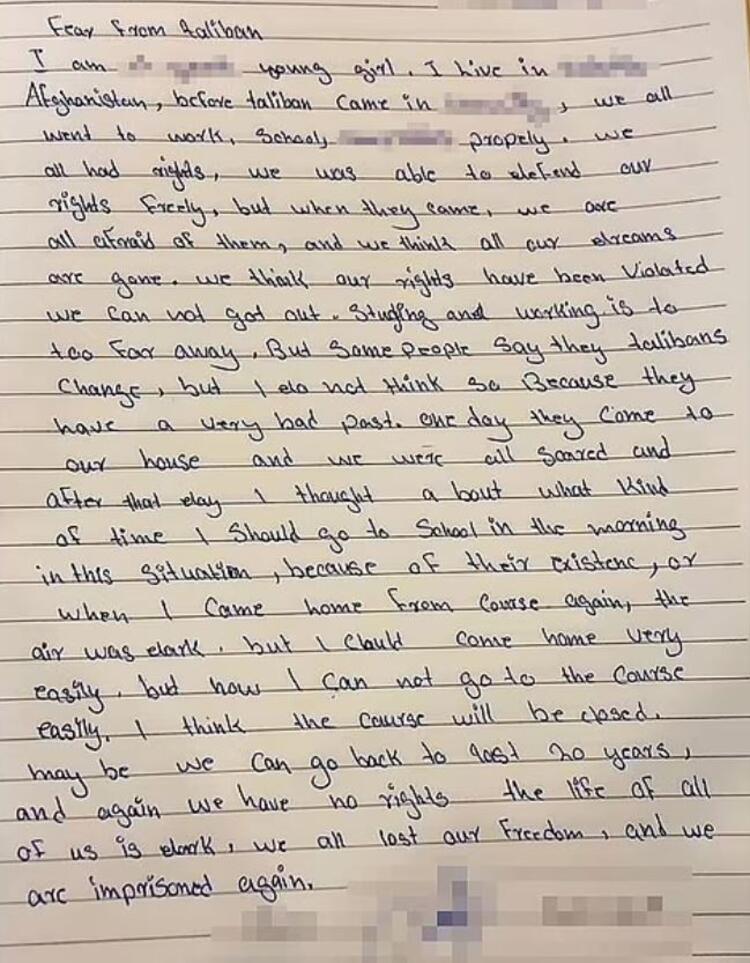 Fear from taliban
I am young girl. I live in
Afghanistan, before taliban came in , we all
went to work, School, propely. we
all had rights, we was able to defend our
rights freely, but when they came, we are
all afraid of them, and we think all our dreams
are gone. we think our rights have been violated
we can not got out. Studing and working is to
too far away. But Some people Say they talibans
Change, but I do not think so Because they
have a very bad past. one day they come to
our house and we were all Scared and
after that day I thought a bout what kind
of time I Should go to School in the morning
in this Situation, because of their existenc, or
when I came home from Course again, the
air was dark. but I Chould come home very
easily. but now I can not go to the Course
easily. I think the course will be closed.
may be we can go back to last 20 years,
and again we have no rights the life of all
of us is dark, we all lost our freedom, and we
are imprisoned again.